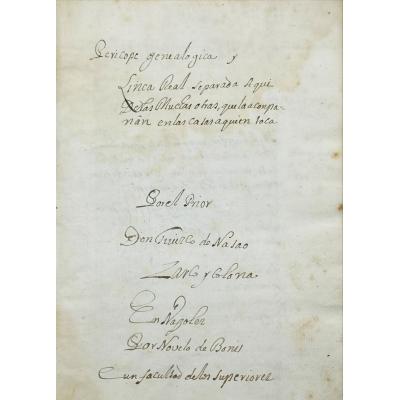 Pericope genealogica y
Linea Real separada aqui
De las Muchas otras, que la acompa-
ñan en las casas a quien toca
Por el Prior
Don Tivizco de Nasao
Zarco y Colona
En Napoles
Por Novelo de Bonis
Con facultad de los superiores